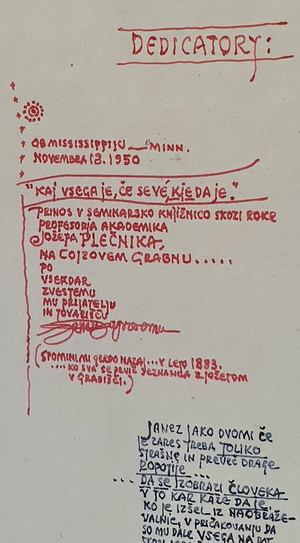 DEDICATORY:
OB MISSISSIPPIJU — MINN.
NOVEMBRA 13. 1950
"KAJ VSEGA JE, ČE SE VÉ, KJE DA JE."
PRINOS V SEMINARSKO KNJIŽNICO SKOZI ROKE
PROFESORJA AKADEMIKA
JOŽEFA PLEČNIKA,
NA COJZOVEM GRABNU.....
PO
VSEKDAR
ZVESTEMU
MU PRIJATELJU
IN TOVARIŠU
(SPOMINJMI GREDO NAZAJ... V LETO 1893.
....KO SVA SE PRVIČ SEZNANILA Z JOŽETOM
V GRADIŠČI.)
JANEZ JAKO DVOMI ČE
JE ZARES TREBA TOLIKO
STRAŠNE IN PREVEČ DRAGE
ROPOTIJE...
... DA SE IZOBRAZI ČLOVEKA
V TO KAR KAŽE DA JE,
KO JE IZŠEL IZ NAOBRAŽE-
VALNIC, V PRIČAKOVANJU DA
SO MU DALE VSEGA NA